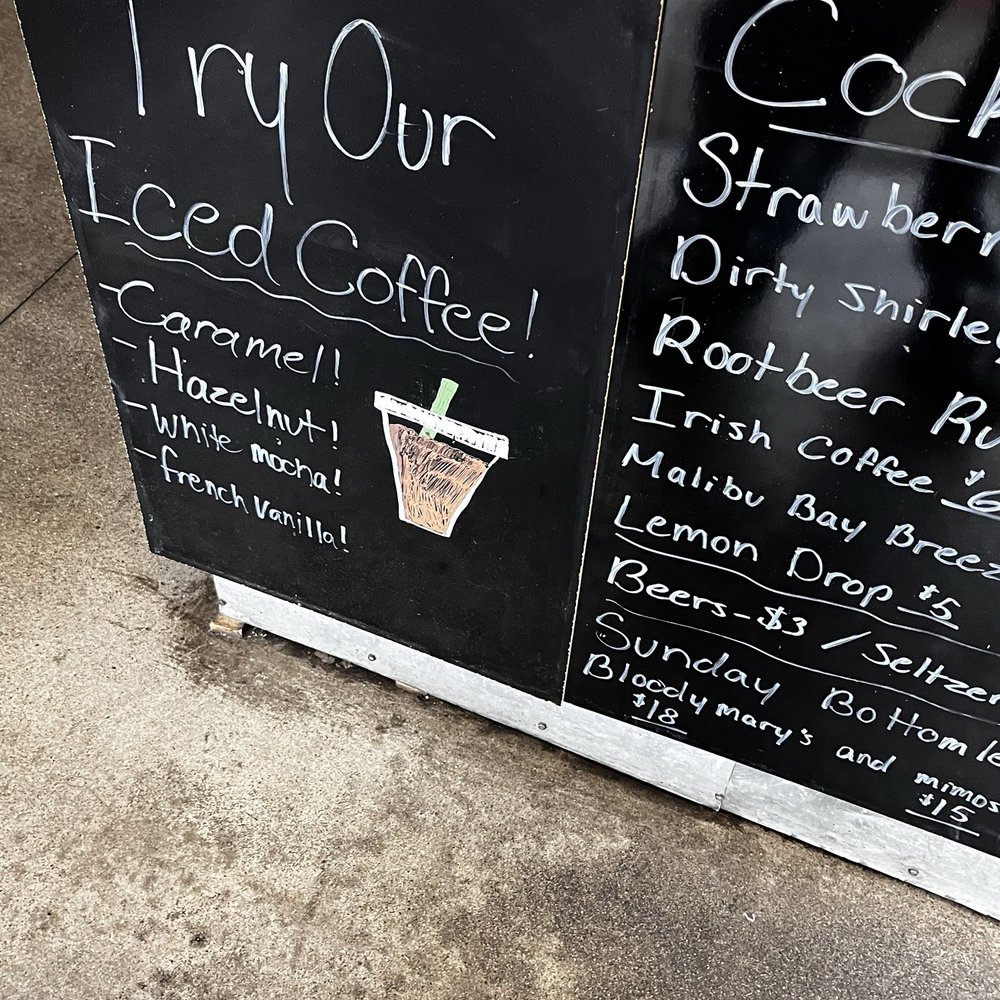 Try Our
Iced Coffee!
- Caramel!
- Hazelnut!
- White mocha!
- French Vanilla!
Cock
Strawberr
Dirty Shirley
Rootbeer Ru
Irish Coffee $6
Malibu Bay Breez
Lemon Drop $5
Beers - $3 / Seltzer
Sunday Bottomle
Bloody mary's and mimos
$18
$15